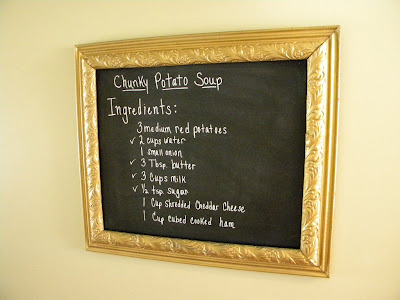 Chunky Potato Soup
Ingredients:
3 medium red potatoes
✓ 2 cups water
1 small onion
✓ 3 Tbsp. butter
✓ 3 Cups milk
✓ ½ tsp. sugar
1 Cup Shredded Cheddar Cheese
1 Cup cubed cooked ham